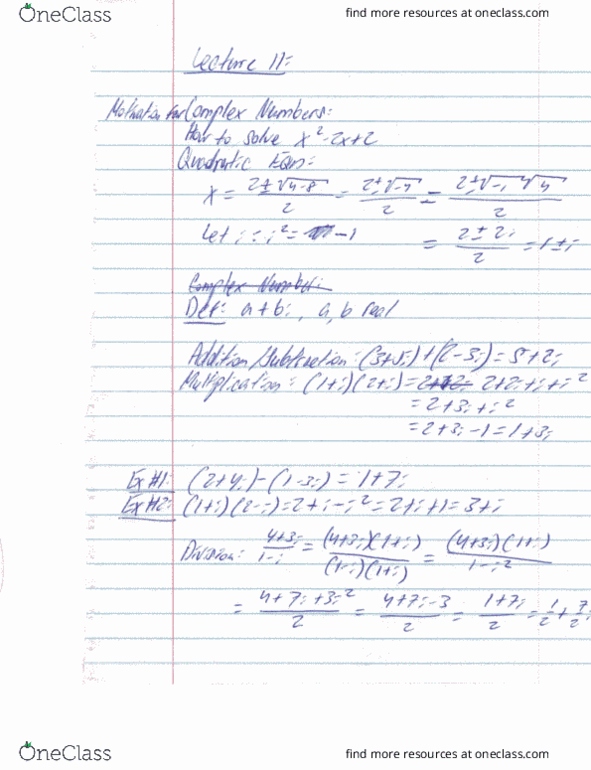 OneClass
find more resources at oneclass.com
Lecture 11:
Motivation for Complex Numbers:
How to solve x²-2x+2
Quadratic Eqn:
x = (2±√4-8)/2 = (2±√-4)/2 = (2±√-1 √4)/2
Let i : i² = -1 = (2±2i)/2 = 1±i
Complex Number:
Def: a+bi, a,b real
Addition/Subtraction: (3+5i)+(2-3i)=5+2i
Multiplication: (1+i)(2+i)= 2+2i+i+i²
=2+3i+i²
=2+3i-1=1+3i
Ex #1: (2+4i)-(1-3i)=1+7i
Ex #2: (1+i)(2-i)=2+i-i²=2+i+1=3+i
Division: (4+3i)/(1-i) = (4+3i)(1+i)/(1-i)(1+i) = (4+3i)(1+i)/1-i²
= (4+7i+3i²)/2 = (4+7i-3)/2 = (1+7i)/2 = 1/2+7/2i
OneClass
find more resources at oneclass.com